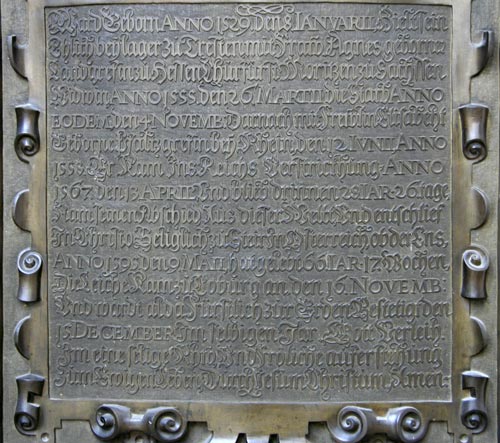 Ward Geborn ANNO 1529. Den 8. IANVARII. Hielt sein
Ehlich beylager zu Dresten mit Fraw Agnes geborner
Landgrefin zu Hessen Churfurst Moritzen zu Sachssen
Widwin ANNO 1555. den 26. MARTII die starb ANNO
EODEM. den 4. NOVEMB: Darnach mit Freulin Elisabeht
Geborne Pfaltzgrefin bey Rhein den 12. IVNII. ANNO
1558. Er Kam Ins Reichs Verstrickhung. ANNO
1567. den 13. APRIL Und blieb drinnen 28. IAR. 26. tage
Nam seinen Abschied Aus dieser Welt Und entschlief
In Christo Seliglich zu Steyr in Osterreich ob der Ens.
ANNO 1595. den 9. MAII hat gelebt 66. IAR. 17. Wochen.
Die Leiche Kam zu Coburg an den 16. NOVEMB:
Und wardt alda Furstlich zur Erden Bestetigt den
15. DECEMBER Im selbigen Jar. Gott Verleih
Im eine selige Rhw Und Froliche aufferstehung
Zum Ewigen Leben. Durch Iesum Christum Amen: